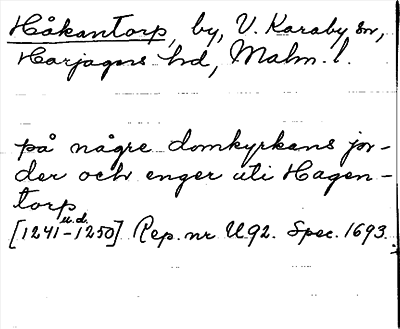 Håkantorp, by, V. Karaby sn,
Harjagers hd, Malm. l.
på någre domkyrkans jor-
der och enger uti Hagen-
torp
u.d.
[1241-1250] Rep. nr U92. Spec. 1693.